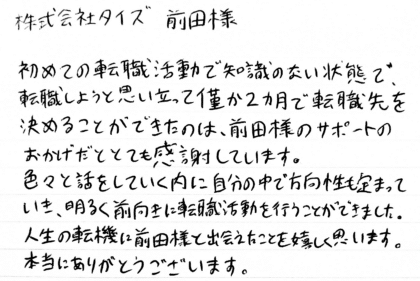 株式会社タイズ 前田様
初めての転職活動で知識のない状態で、
転職しようと思い立って僅か2カ月で転職先を
決めることができたのは、前田様のサポートの
おかげだととても感謝しています。
色々と話をしていく内に自分の中で方向性も定まって
いき、明るく前向きに転職活動を行うことができました。
人生の転機に前田様と出会えたことを嬉しく思います。
本当にありがとうございます。